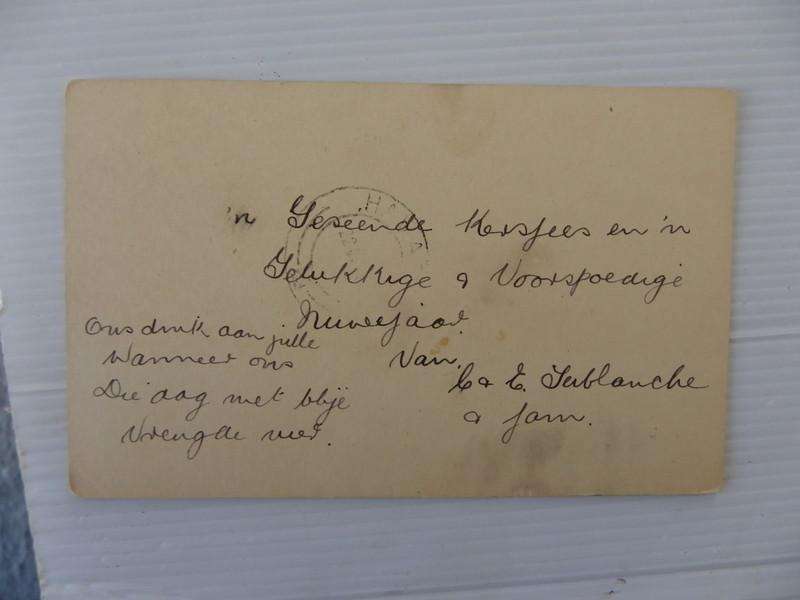 'n Geseënde Kersfees en 'n
Gelukkige & Voorspoedige
Nuwejaar.
Van.
C & E. Terblanche
& fam.
Ons dink aan julle
Wanneer ons
Die dag met blije
Vreugde vier.
HA